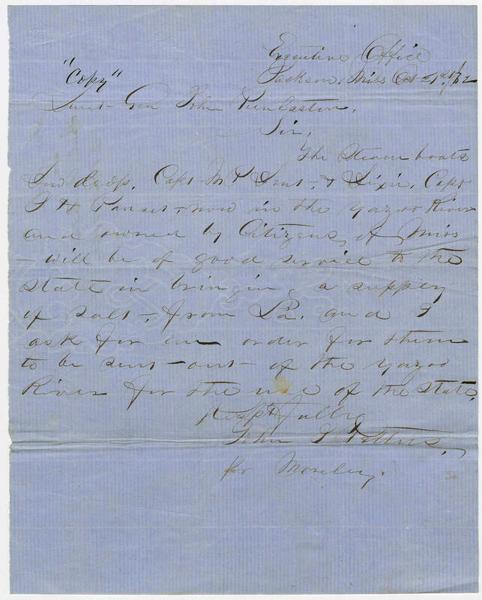 Executive Office
Jackson, Miss Oct 1862
"Copy"
Lieut-Gen John Pemberton,
Sir,
The Steam boats
Dew drop, Capt & Dixie, Capt
now in the Yazoo River
and owned by Citizens of Miss
- will be of good service to the
State in bringing a supply
of salt, from La. and I
ask for an order for them
to be sent out of the Yazoo
River for the use of the State.
Respectfully
John J Pettus,
for Moseley.